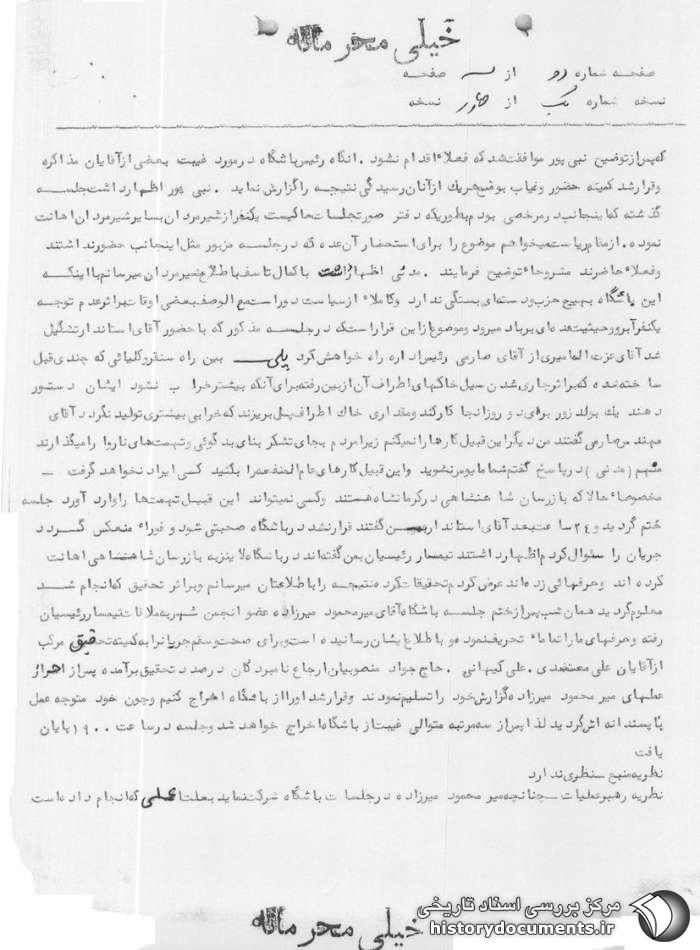 خیلی محرمانه
صفحه شماره دو از سه صفحه
نسخه شماره یک از چهار نسخه
که پس از توضیح نبی پور موافقت شد که فعلاء اقدام نشود . انگاه رئیس باشگاه در مورد غیبت بعضی از آقایان مذاکره
وقرار شد کمیته حضور وغیاب بوضع هریک از آنان رسیدگی نتیجه را گزارش نماید . نبی پور اظهار داشت جلسه
گذشته که اینجانب در مرخصی بودم بطوریکه دفتر صورتجلسات حاکیست یکنفر از شیرمردان بسایر شیرمردان اهانت
نموده . از مقام ریاست میخواهم موضوع را برای استحضار آن عده که در جلسه مزبور مثل اینجانب حضور نداشتند
وفعلاء حاضرند مشروحاء توضیح فرمایند . مدنی اظهار داشت با کمال تاسف باطلاع شیرمردان میرسانم با اینکه
این باشگاه بهیچ حزب و دسته ای بستگی ندارد وکاملاء از سیاست دور است مع الوصف بعضی اوقات براثر عدم توجه
یکنفر آبرو وحیثیت عده ای برباد میرود وموضوع از این قرار استکه در جلسه مذکور که با حضور آقای استاندار تشکیل
شد آقای عزت اله امیری از آقای صارمی رئیس اداره راه خواهش کرد پلی بین راه سنقر و کلیائی که چندی قبل
ساخته شده که براثر جاری شدن سیل خاکهای اطراف آن از بین رفته برای آنکه بیشتر خراب نشود ایشان دستور
دهند یک بولدزور برای دو روز انجا کار کند ومقداری خاک اطراف پل بریزند که خرابی بیشتری تولید نگردد آقای
مهندس صارمی گفتند من دیگر این قبیل کارها را نمیکنم زیرا مردم بجای تشکر بنای بدگوئی وتهمت های ناروا را میگذارند
منهم (مدنی) در پاسخ گفتم شما مایوس نشوید واین قبیل کارهای عام المنفعه را بکنید کسی ایراد نخواهد گرفت –
مخصوصاء حالا که بازرسان شاهنشاهی در کرمانشاه هستند وکسی نمیتواند این قبیل تهمت ها را وارد آورد جلسه
ختم گردید و ۲۴ ساعت بعد آقای استاندار بمن گفتند قرار نشد در باشگاه صحبتی شود و فوراء منعکس گردد
جریان را سئوال کردم اظهار داشتند تیمسار رئیسیان بمن گفته اند در باشگاه لاینز به بازرسان شاهنشاهی اهانت
کرده اند وحرفهائی زده اند عرض کردم تحقیقات کرده نتیجه را باطلاعتان میرسانم وبراثر تحقیق که انجام شد
معلوم گردید همان شب پس از ختم جلسه باشگاه آقای میرمحمود میرزاده عضو انجمن شهر به ملاقات تیمسار رئیسیان
رفته وحرفهای ما را تماماء تحریف نموده و باطلاع ایشان رسانیده است وبرای صحت وسقم جریان را به کمیته تحقیق مرکب
از آقایان علی معتضدی . علی کیهانی . حاج جواد منصوبیان ارجاع نامبردگان در صدد تحقیق برآمده پس از احراز
عملهای میر محمود میرزاده گزارش خود را تسلیم نمودند وقرار شد اورا از باشگاه اخراج کنیم وچون خود متوجه عمل
ناپسندانه اش گردید لذا پس از سه مرتبه متوالی غیبت از باشگاه اخراج خواهد شد وجلسه در ساعت ۱۹۰۰ پایان
یافت
نظریه منبع – نظری ندارد
نظریه رهبر عملیات – چنانچه میر محمود میرزاده در جلسات باشگاه شرکت ننماید بعلت عملی که انجام داده است
خیلی محرمانه
مرکز بررسی اسناد تاریخی
historydocuments.ir